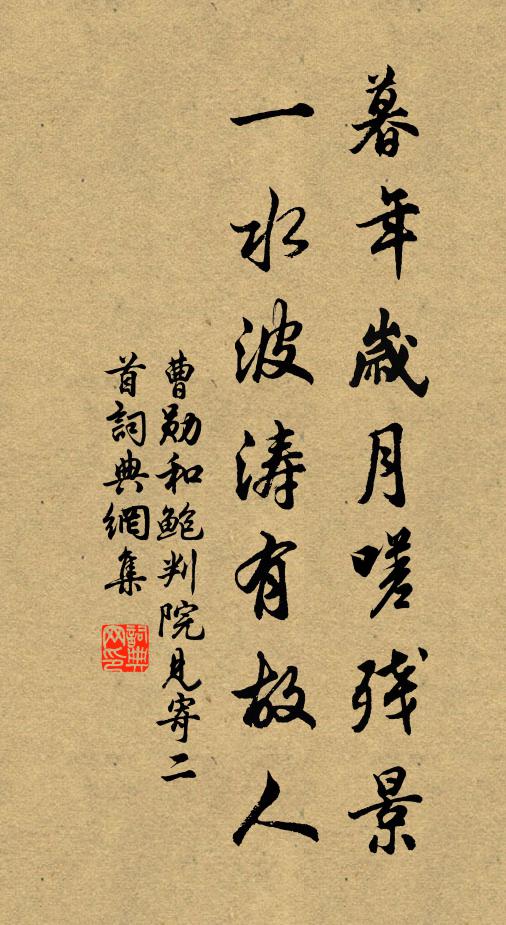 暮年歲月嗟残景
一水波涛有故人
曹勋和鲍判院见寄二
首詞典網集
詞典网印